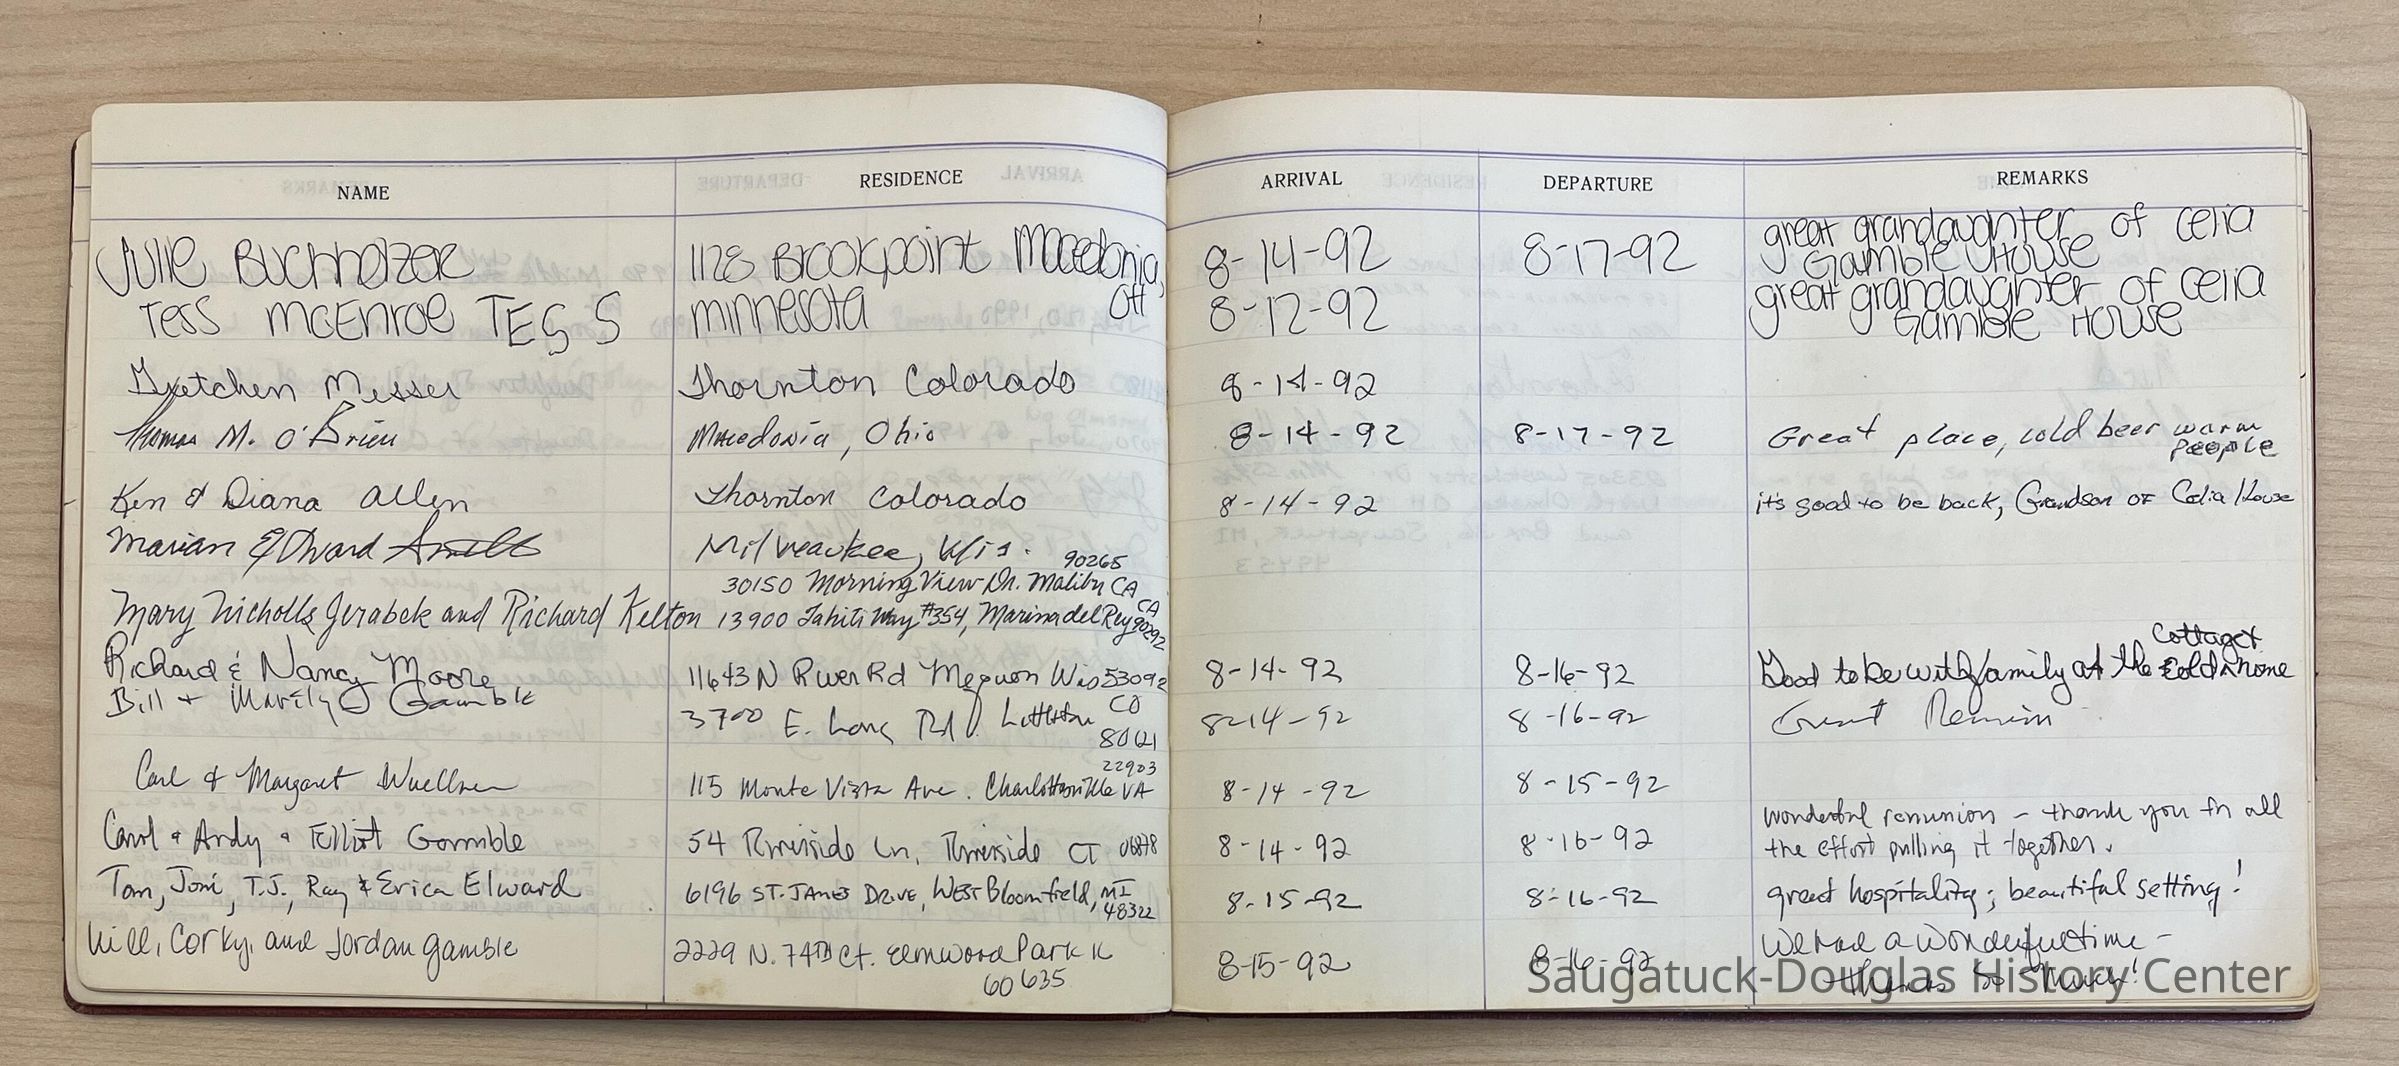 NAME RESIDENCE ARRIVAL DEPARTURE REMARKS
Julie Buchholzer 1128 Brookpoint Macedonia, OH 8-14-92 8-17-92 great grandaughter of Celia Gamble House
Tess McEnroe TESS minnesota 8-12-92 great grandaughter of Celia Gamble House
Gretchen Messer Thornton Colorado 8-14-92
Thomas M. O'Brien Macedonia, Ohio 8-14-92 8-17-92 Great place, cold beer warm people
Ken & Diana Allen Thornton Colorado 8-14-92 it's good to be back, Grandson of Celia House
Marian Edward Milwaukee, Wis.
30150 Morning View Dr. Malibu CA 90265
Mary Nicholls Jerabek and Richard Kelton 13900 Tahiti Way #354, Marina del Rey CA 90292
Richard & Nancy Moore 11643 N River Rd Mequon Wis 53092 8-14-92 8-16-92 Good to be with family at the old home Cottage
Bill + Marilyn Gamble 3700 E. Long Rd Littleton CO 80121 8-14-92 8-16-92 Great Reunion
Carl & Margaret Wuellner 115 Monte Vista Ave. Charlottesville VA 22903 8-14-92 8-15-92
Carol & Andy & Elliot Gamble 54 Riverside Ln, Riverside CT 06878 8-14-92 8-16-92 wonderful reunion - thank you for all
the effort pulling it together.
Tom, Joni, T.J., Ray & Erica Elward 6196 ST. JAMES DRIVE, WEST Bloomfield, MI 48322 8-15-92 8-16-92 great hospitality; beautiful setting!
Will, Corky, and Jordan Gamble 2229 N. 74TH Ct. Elmwood Park IL 60635 8-15-92 8-16-92 We had a wonderful time -
thanks so much!
Saugatuck-Douglas History Center